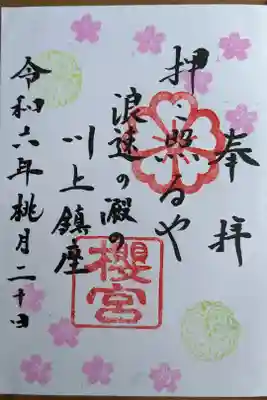 奉拝
押し照るや
浪速の殿の
川上鎮座
櫻宮
令和六年桃月二十日